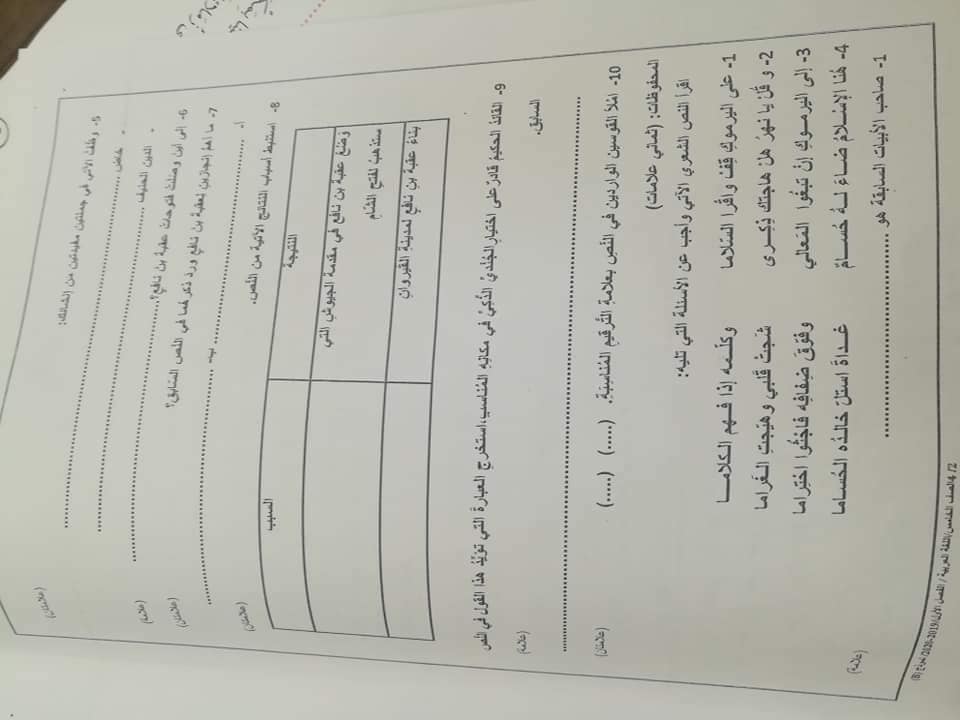 5- وظّفْ الآتي في جملتين مفيدتين من إنشائك: (علامتان)
- خاض ........................................
- الدين الحنيف ........................................
6- إلى أينَ وصَلتْ فتوحاتُ عقبة بنُ نافعٍ؟........................................ (علامة)
7- ما أهمُّ إنجازينِ لِعقبةَ بنُ نافعٍ وردَ ذكرهُما في النّص السّابق؟ (علامتان)
أ- ........................................ ب- ........................................
8- استنبط أسباب النتائج الآتية من النّص. (علامتان)
النتيجة السبب
وَضْعُ عقبة بن نافع في مقدمة الجيوشِ التي
ستذهبُ لفتحِ الشّامِ
بناءُ عقبة بنِ نافعٍ لمدينةِ القيروانِ
9- القائدُ الحكيمُ قادرٌ على اختيارِ الجُنْديِّ الذّكِيِّ في مكانِهِ المُناسبِ،استخرجِ العبارةَ التي تؤيِّدُ هذا القول في النّص
السابق. (علامة)
........................................
10- امْلأ القوسين الواردين في النّصِ بعلامةِ التَّرقيمِ المُناسِبَةِ. (.....) (.....) (علامتان)
المحفوظات: (ثماني علامات)
اقرأ النص الشعري الآتي وأجب عن الأسئلة التي تليه:
1- على اليرموكِ قِفْ واقْرا السّلاما وكلّـمه إذا فـهم الـكلامـا
2- و قُلْ يا نهرُ هلْ هاجتك ذِكِـرى شَجتْ قَلبي وهيّجتِ الـغَراما
3- إلى اليرمـوكِ إنْ تبغُوا المَعالي وفوّقَ ضِفافِه فاجْثُوا احْتِراما
4- هُنا الإسْـلامُ ضـاءَ لـهُ حُسـامٌ غـداةَ استلّ خالـدُه الـحُسـاما
1- صاحب الأبيات السابقة هو ........................................ (علامة)
4/2الصف الخامس/اللغة العربية / الفصل الأول/2019-2020/ نموذج (B)